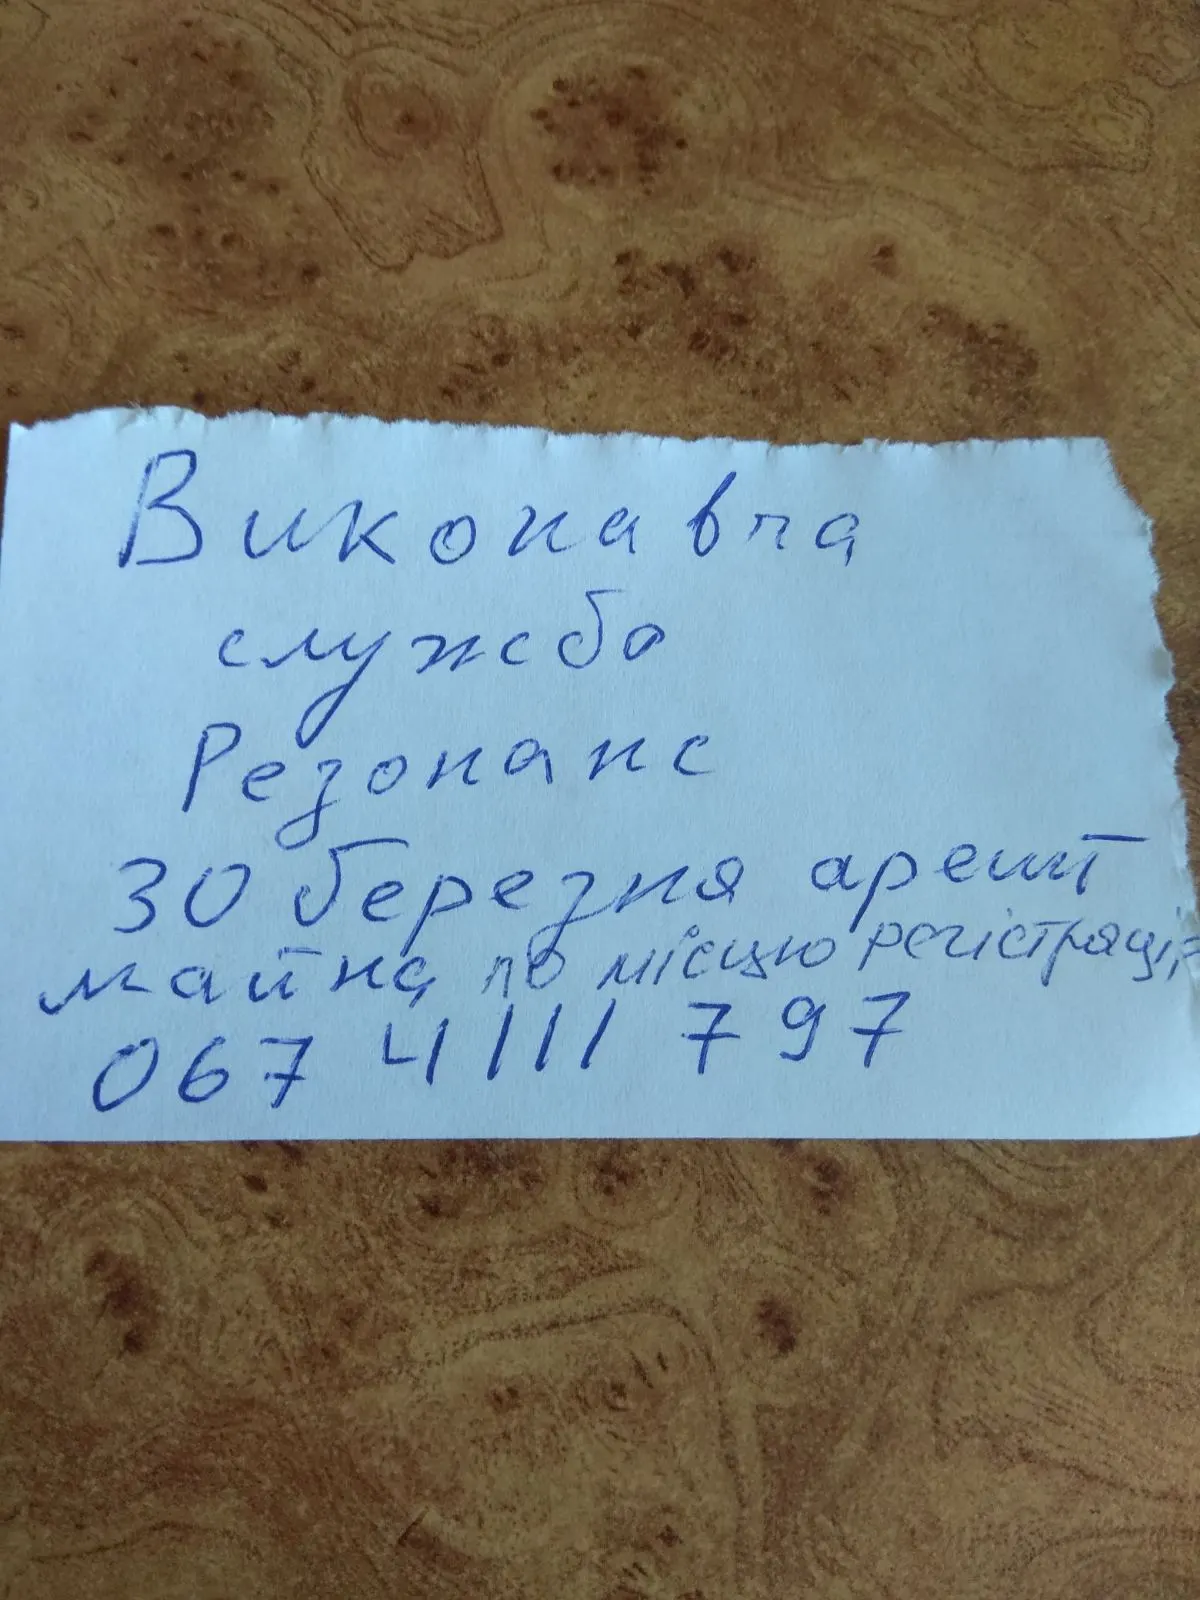 Виконавча
служба
Резонанс
30 березня арешт
майна по місцю реєстрації
067 4111 797